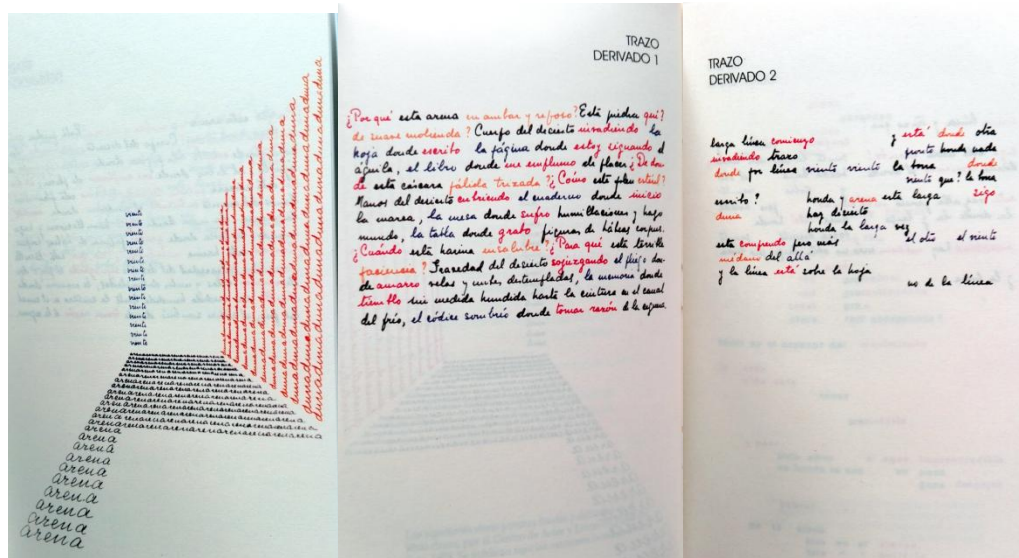 viento
viento
viento
viento
viento
viento
viento
viento
viento
viento
viento
viento
viento
viento
dunadunadunadunadunaduna
arenarenarenarenarenarenarena
arena
arena
arena
arena
arena
arena
arena
arena
arena
TRAZO
DERIVADO 1
¿Por qué esta arena en ámbar y reposo? Esta piedra qué?
de suave molienda? Cuerpo del desierto invadiendo la
hoja donde escribo la página donde estoy ciguando el
águila, el libro donde me emplumo de placer ¿De don-
de esta cáscara pálida trizada? ¿Cómo este plan estéril?
Manos del desierto cubriendo el cuaderno donde inicio
la marea, la mesa donde sufro humillaciones y hago
mundo, la tabla donde grabo figuras de hábeas corpus.
¿Cuándo esta harina insalubre? ¿Para qué esta terrible
fasciencia? Gravedad del desierto sojuzgando el pliego don-
de amarro velas y nubes destempladas, la memoria donde
tiemblo sin medida hundida hasta la cintura en el canal
del frío, el códice sombrío donde tomar razón de la espuma.
TRAZO
DERIVADO 2
larga línea comienzo y está donde otra
invadiendo trazo punto honda nada
donde por línea viento viento la borra donde
viento que? la borra
escribo? honda y arena esta larga sigo
duna hay desierto
honda la larga vez
esta comprendo pero más el otro el viento
médano del allá
y la línea está sobre la hoja
no de la línea